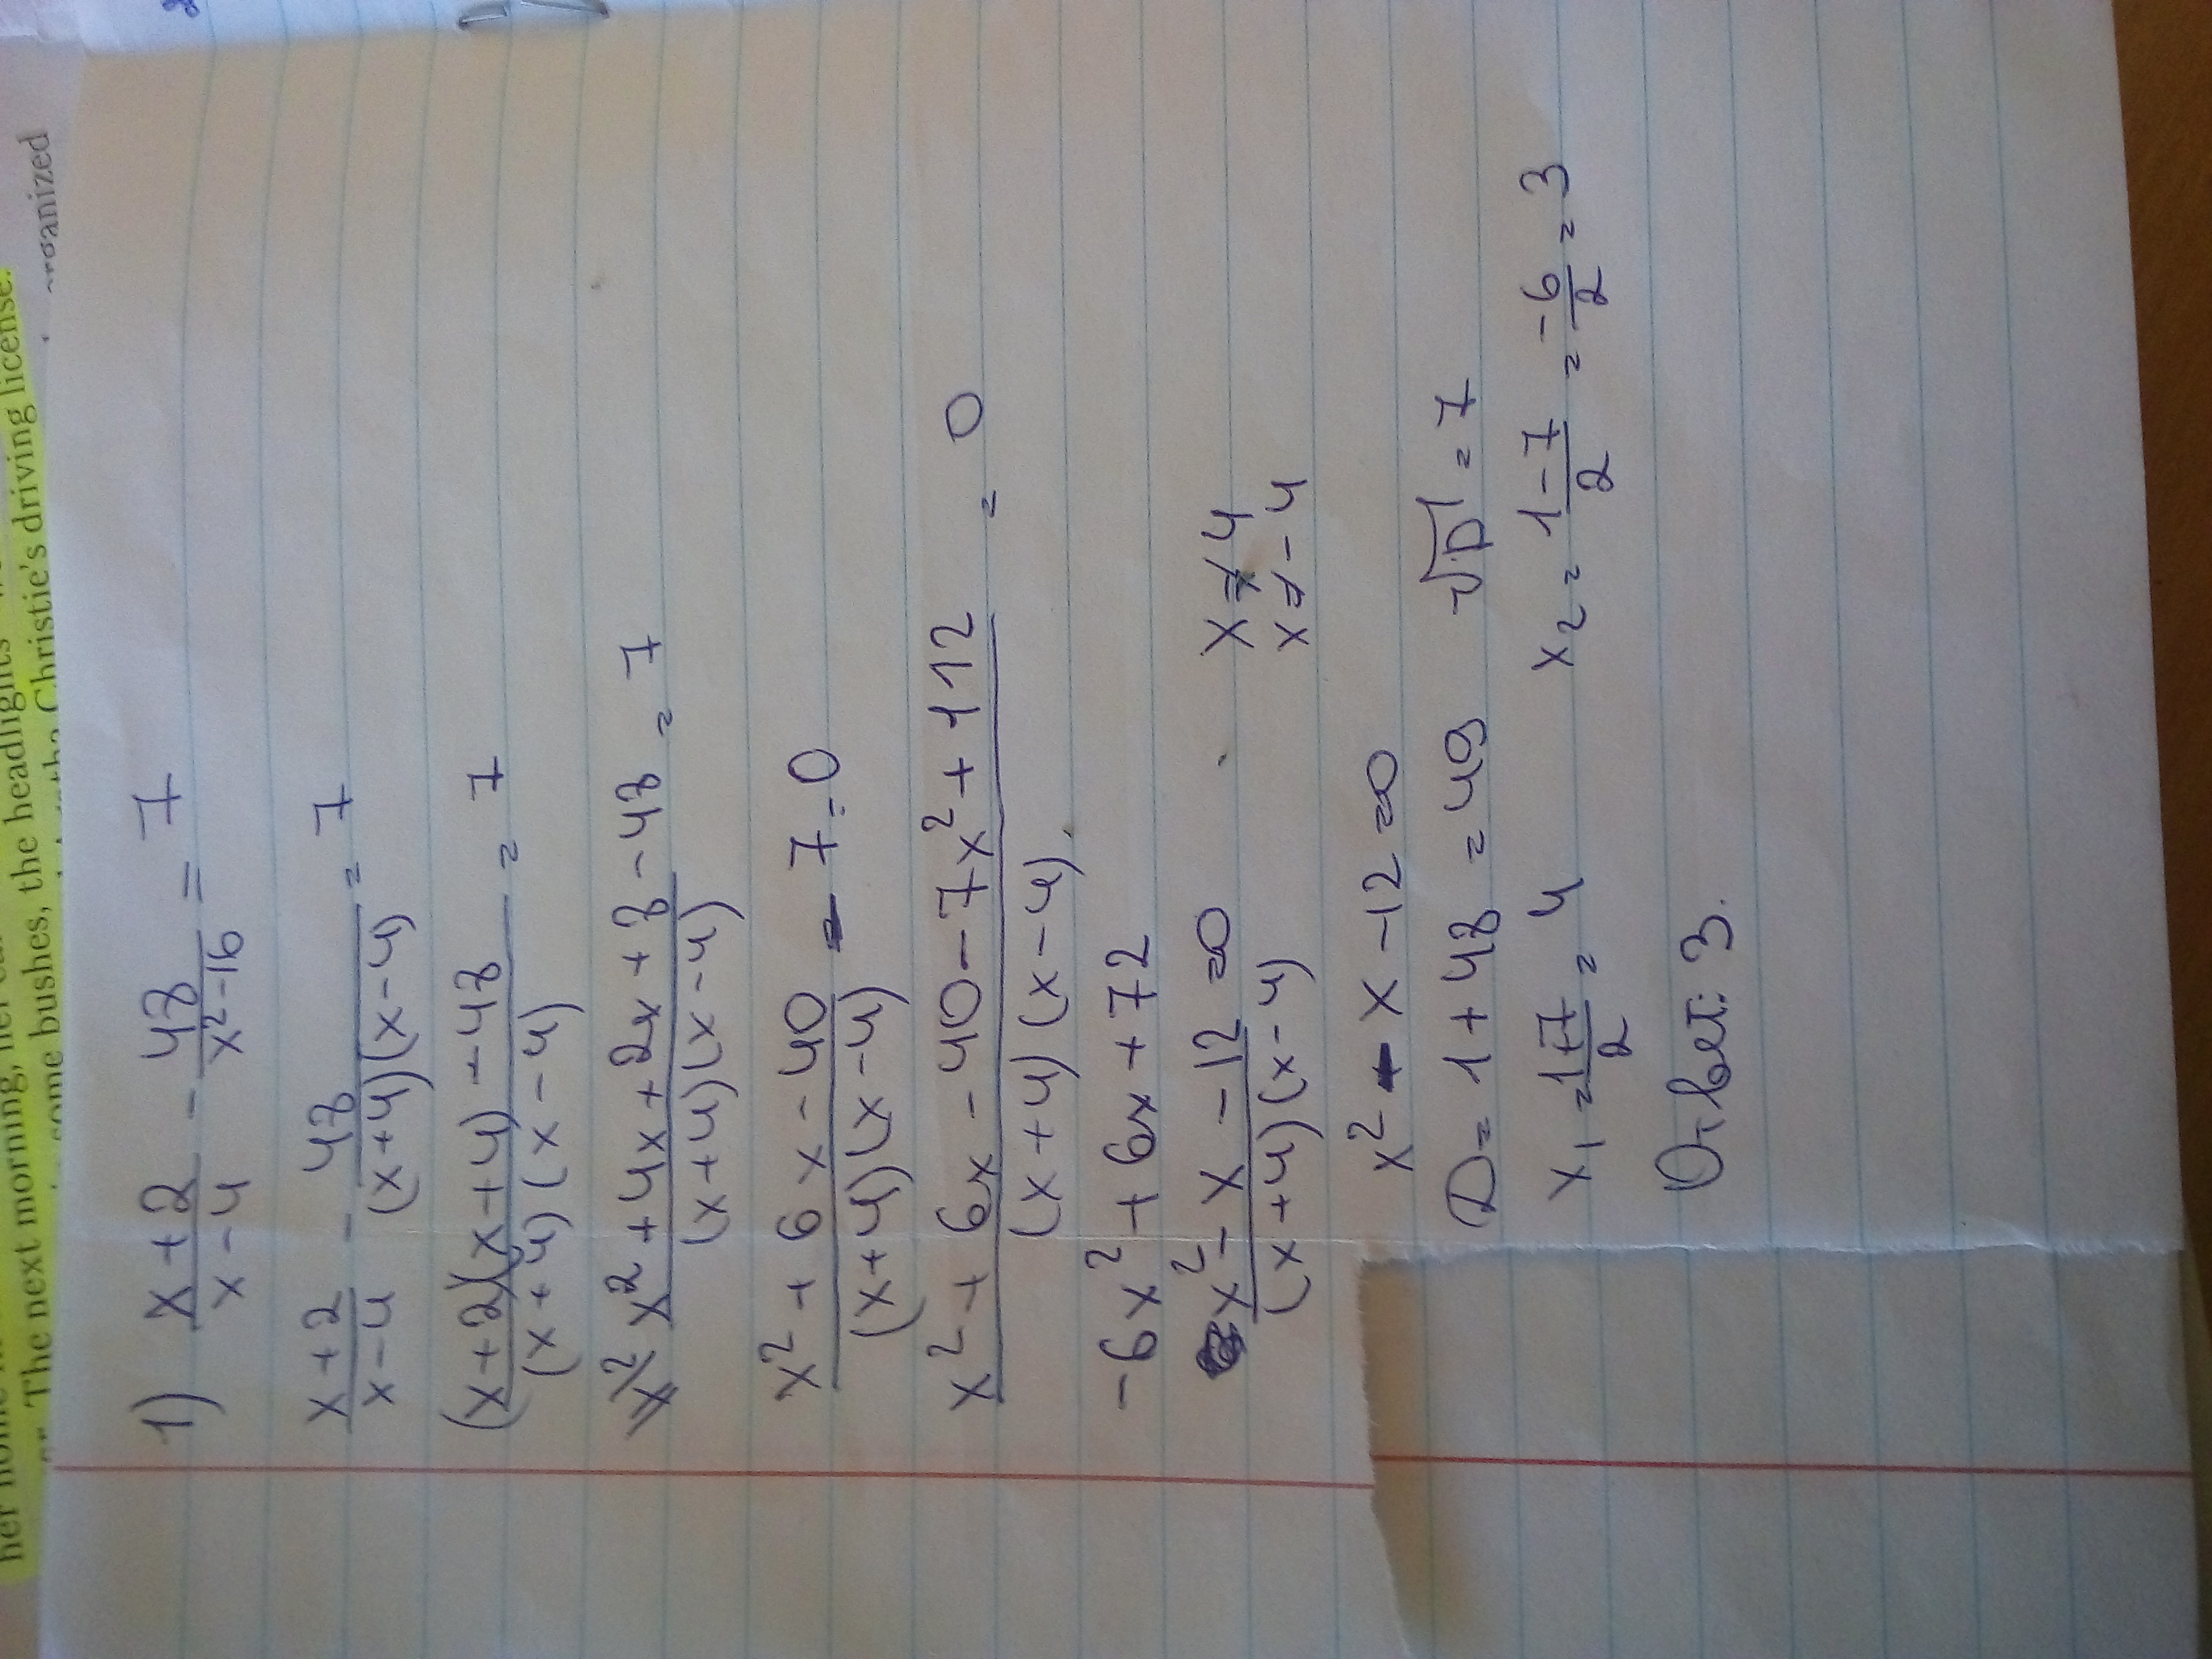 her
The next morning, her
the headlights
some bushes, the headlights
Christie's driving license.
organized
1) x+2/x-4 - 48/x²-16 = 7
x+2/x-4 - 48/(x+4)(x-4) = 7
(x+2)(x+4) - 48/(x+4)(x-4) = 7
x² x²+4x+2x+8-48/(x+4)(x-4) = 7
x²+6x-40/(x+4)(x-4) - 7 = 0
x²+6x-40-7x²+112/(x+4)(x-4) = 0
-6x²+6x+72
x²-x-12/(x+4)(x-4) = 0 x≠4
x≠-4
x²-x-12=0
D=1+48=49 √D=7
x₁=1+7/2=4 x₂=1-7/2=-6/2=3
Ответ: 3.